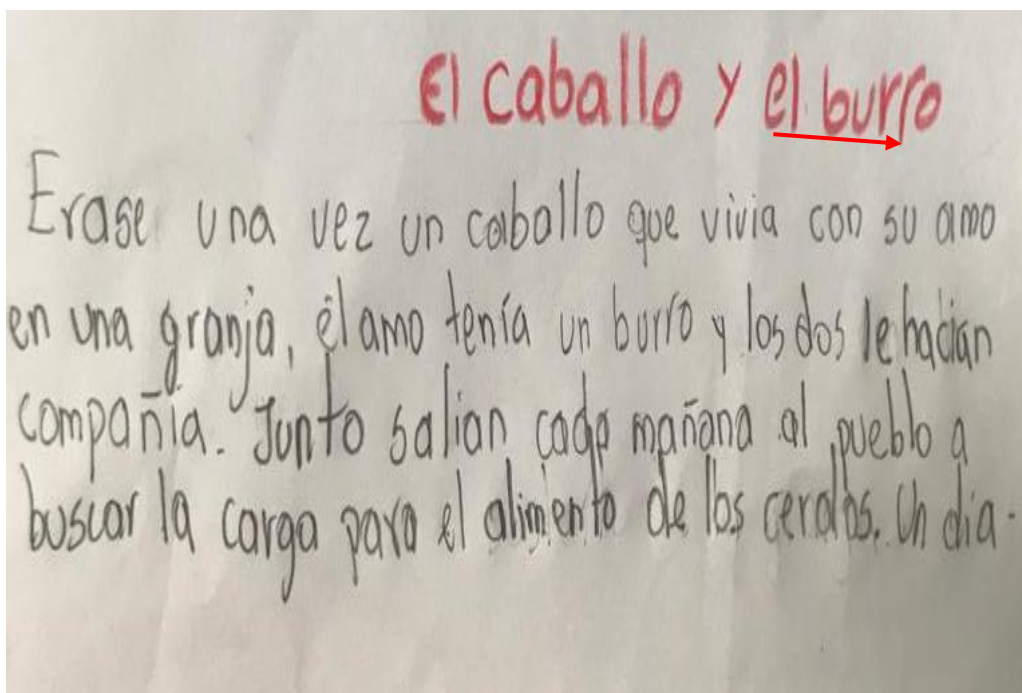 El caballo y el burro
Erase una vez un caballo que vivia con su amo
en una granja, él amo tenía un burro y los dos le hacian
compañia. Junto salian cada mañana al pueblo a
buscar la carga para el alimento de los cerdos. Un dia-